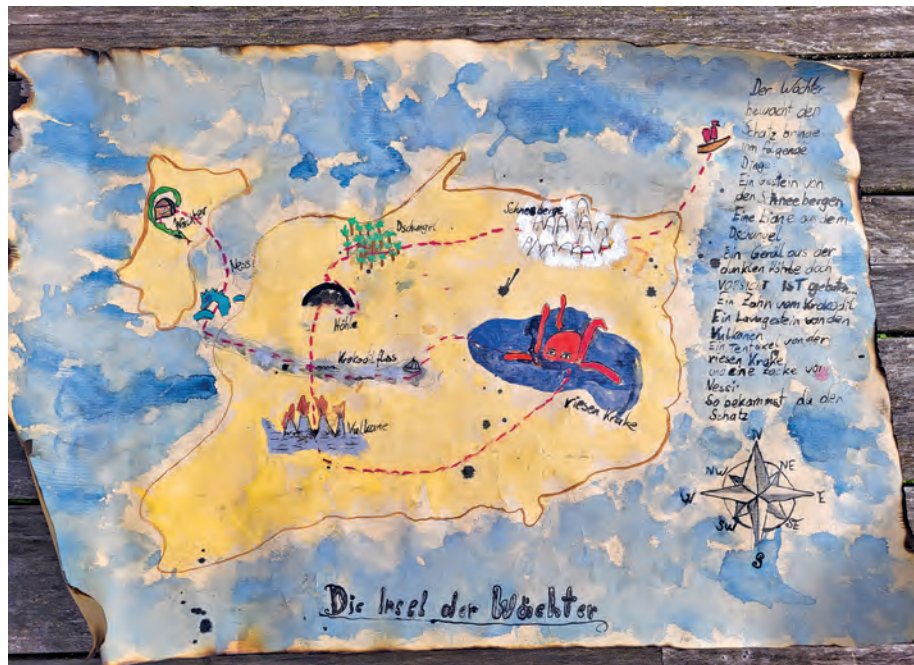 Der Wächter
bewacht den
Schatz bringe
ihm folgende
Dinge
Ein
den Schneebergen
Eine Liane an dem
Dschungel
Ein Geröll aus der
dunklen Höhle doch
VORSICHT IST geboten
Ein Zahn vom Krokodil
Ein Lavagestein von den
Vulkanen
Ein Tentakel von der
riesen Krake
und eine Zacke von
Nessi
So bekommst du den
Schatz
Schneeberge
Wächter
Dschungel
Nessi
Höhle
Krokodilfluss
riesen Krake
Vulkane
N
NW NE
W E
SW SE
S
Die Insel der Wächter